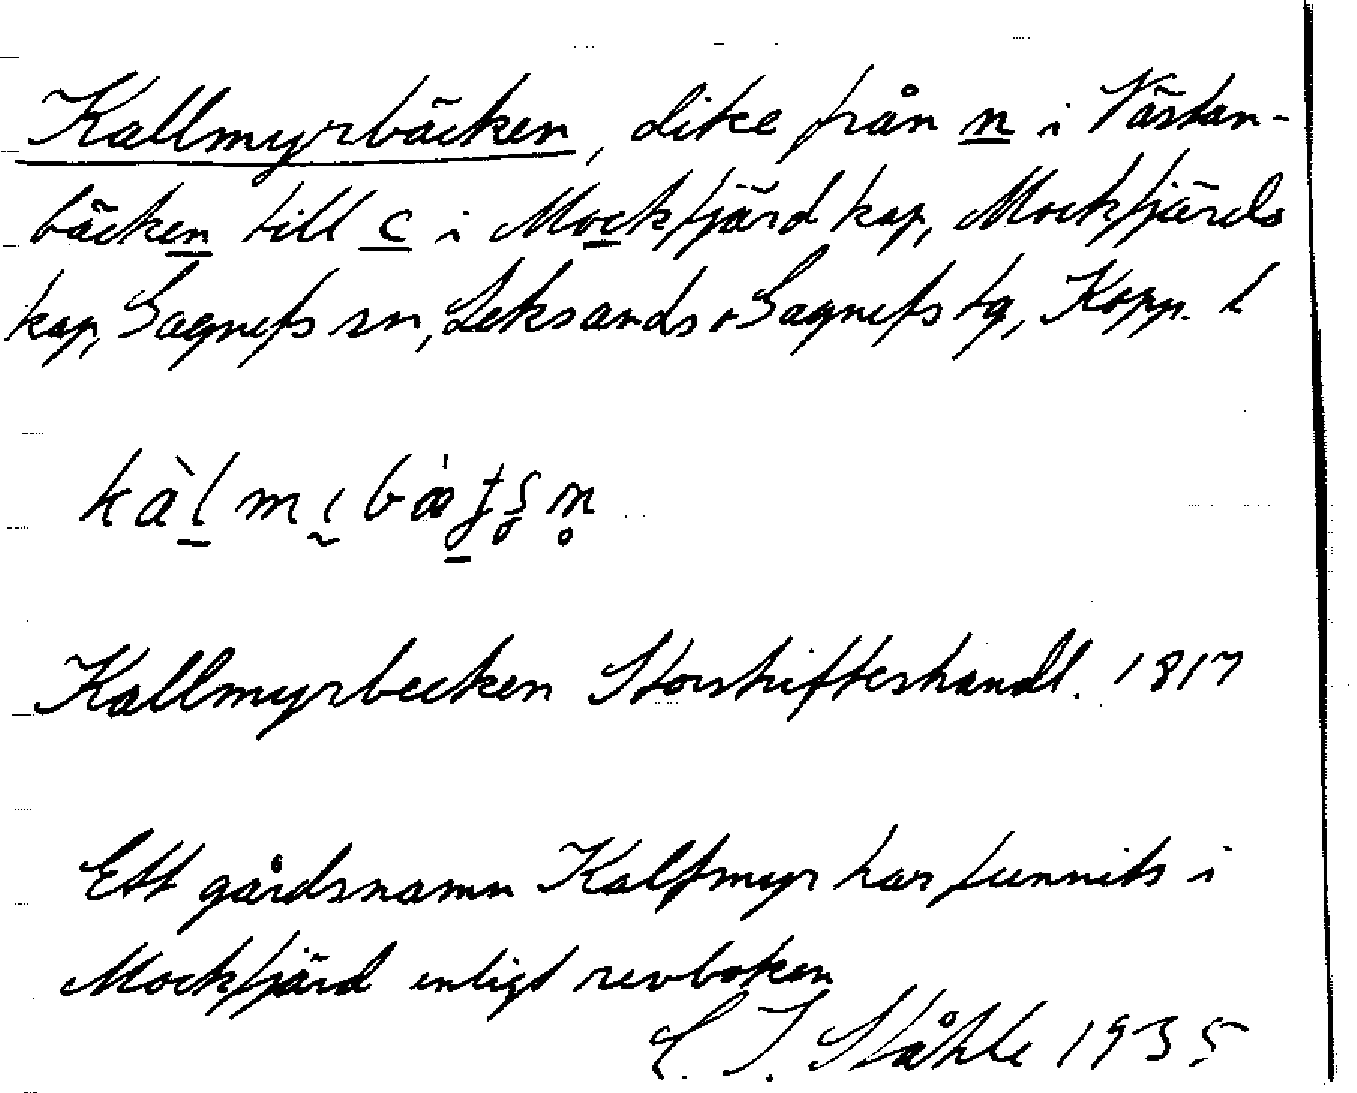 Kallmyrbäcken, dike från n i Västan-
bäcken till c i Mockfjärd kap, Mockfjärds
kap, Gagnefs sn, Leksands o Gagnefs tg, Kopp. l
Kallmyrbecken Storskifteshandl. 1817
Ett gårdsnamn Kalfmyr har funnits i
Mockfjärd enligt revboken
C. I. Ståhle 1935